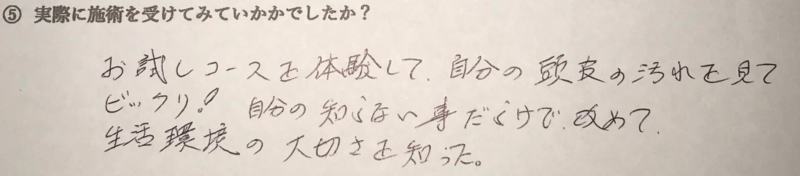 ⑤ 実際に施術を受けてみていかかでしたか？
お試しコースを体験して、自分の頭皮の汚れを見て
ビックリ！ 自分の知らない事だらけで、改めて、
生活環境の大切さを知った。